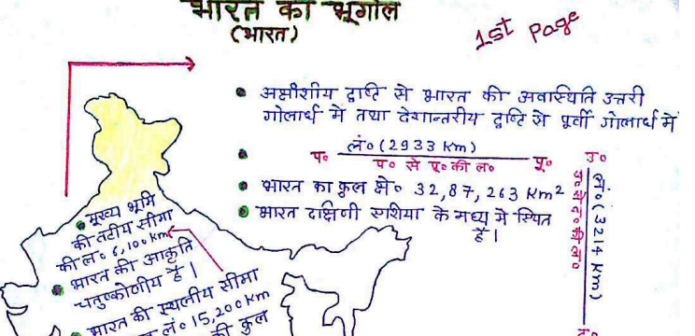 भारत का भूगोल
(भारत)
1st Page
• अक्षांशीय दृष्टि से भारत की अवस्थिति उत्तरी
गोलार्ध में तथा देशान्तरीय दृष्टि से पूर्वी गोलार्ध में
• लं० (2933 Km)
प० प० से पू० की लं० पू०
• भारत का कुल क्षे० 32,87,263 Km²
• भारत दक्षिणी एशिया के मध्य में स्थित
है।
उ०
उ० से द० की लं०
लं० (3214 Km)
द०
• मुख्य भूमि
की तटीय सीमा
की लं० 6,100 Km
• भारत की आकृति
चतुष्कोणीय है।
भारत की स्थलीय सीमा
लं० 15,200 Km
की कुल